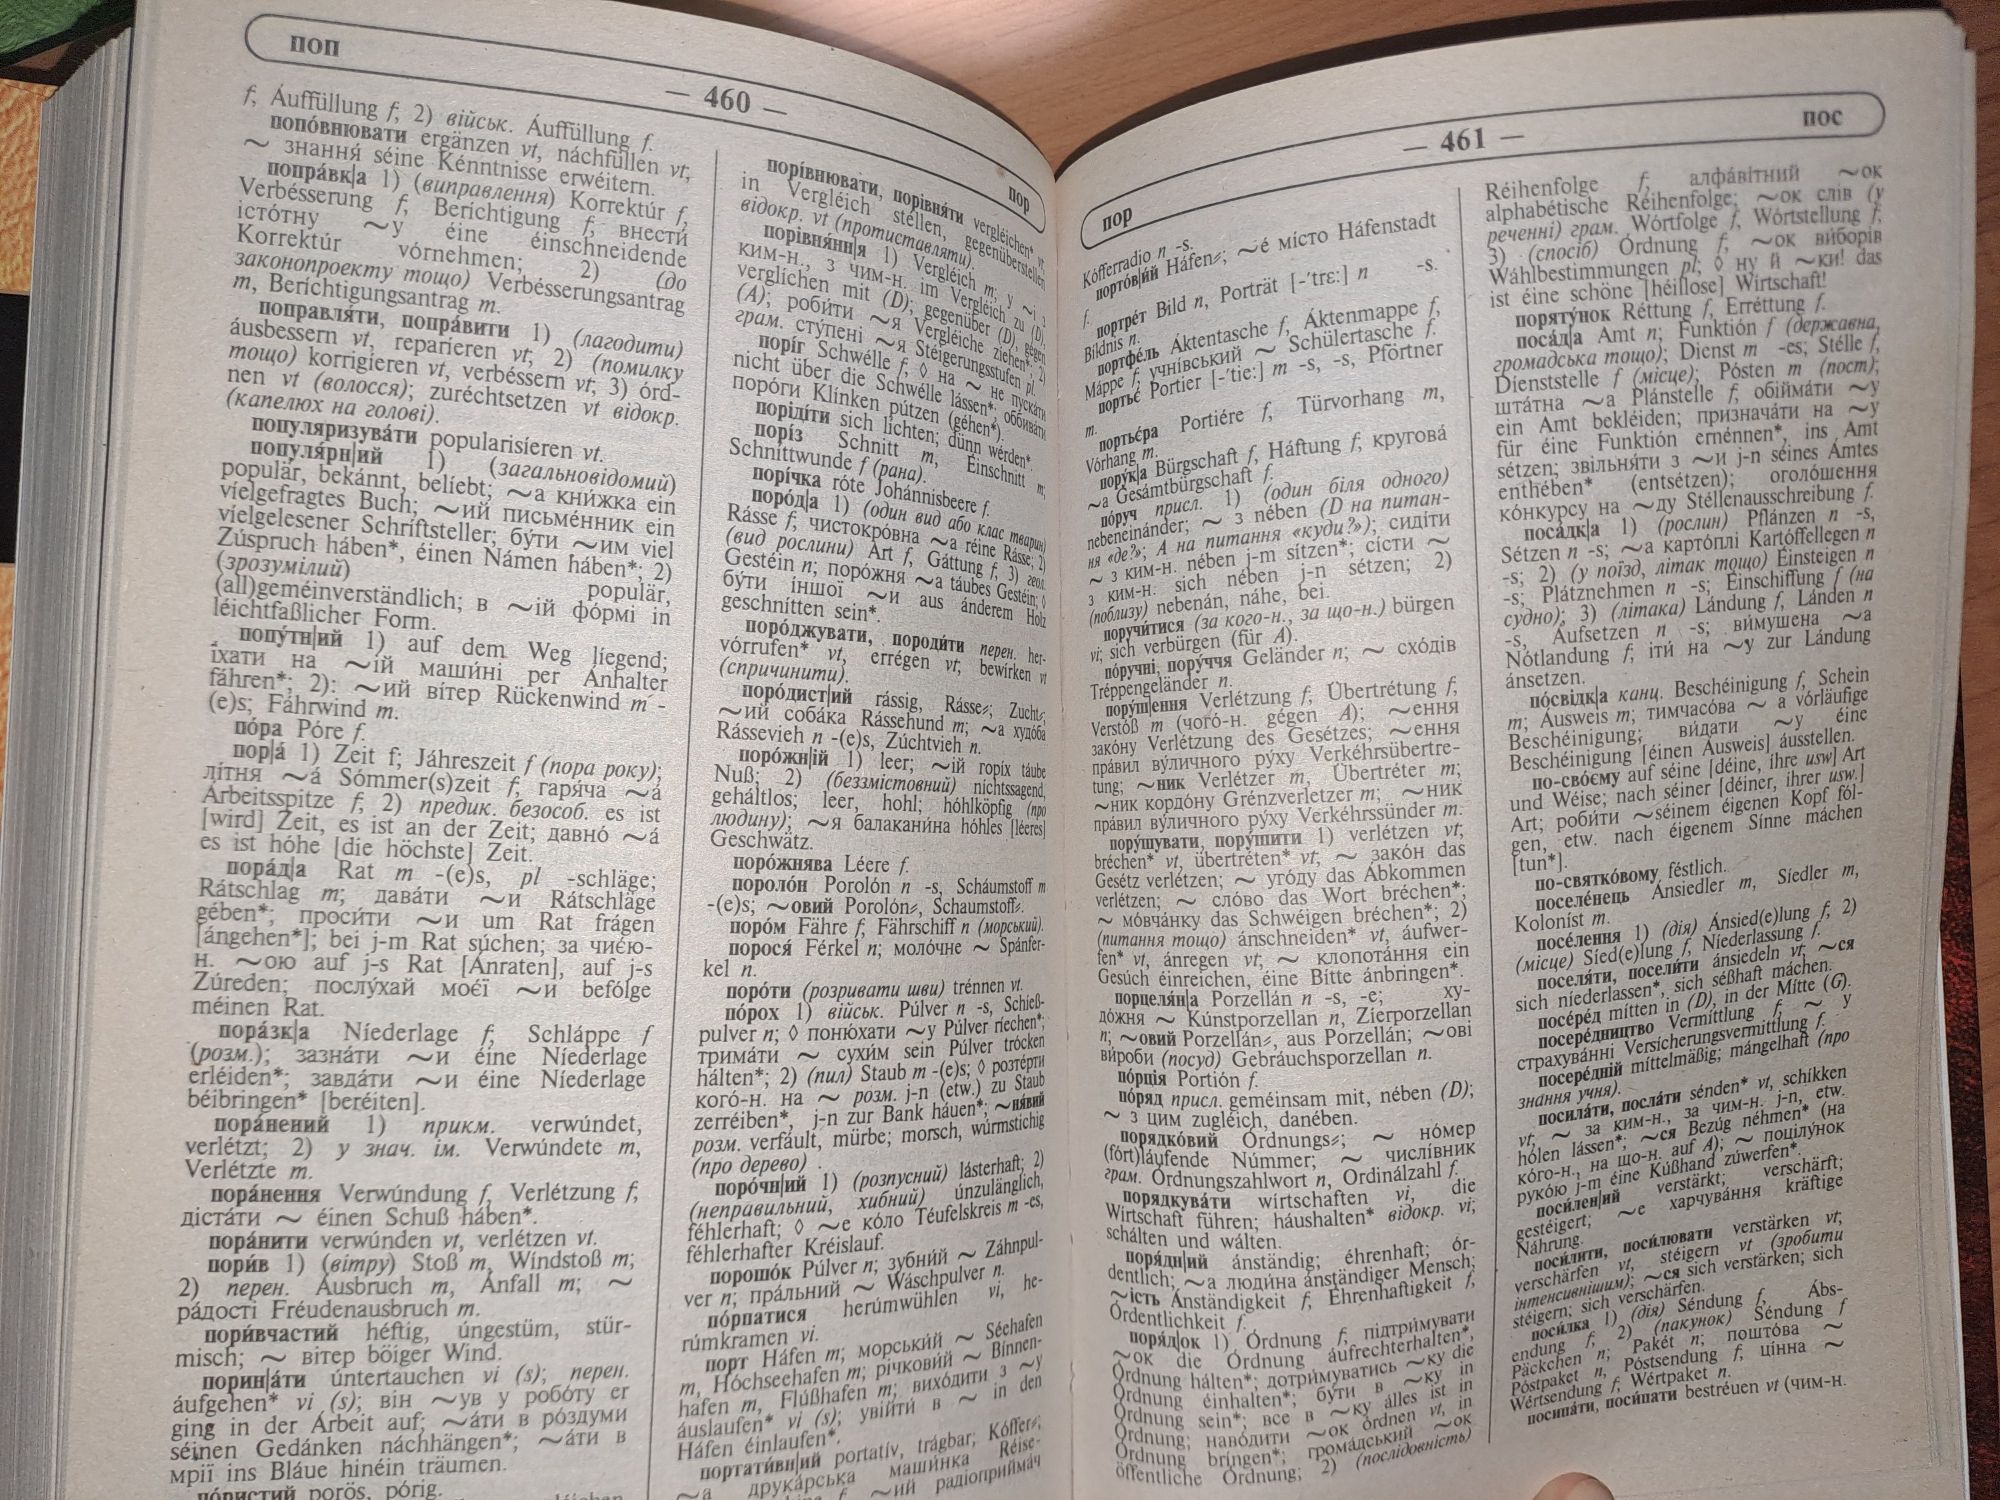 поп
— 460 —
f, Áuffüllung f; 2) військ. Áuffüllung f.
попо́внювати ergänzen vt, náchfüllen vt;
~ знання́ séine Kénntnisse erwéitern.
попра́вк|а 1) (виправлення) Korrektúr f,
Verbésserung f, Beríchtigung f; внести́
істо́тну ~у éine éinschneidende
Korrektúr vórnehmen; 2) (до
законопроекту тощо) Verbésserungsantrag
m, Beríchtigungsantrag m.
поправля́ти, попра́вити 1) (лагодити)
áusbessern vt, reparíeren vt; 2) (помилку
тощо) korrigíeren vt, verbéssern vt; 3) órd-
nen vt (волосся); zuréchtsetzen vt відокр.
(капелюх на голові).
популяризува́ти popularisíeren vt.
популя́рн|ий 1) (загальновідомий)
populär, bekánnt, belíebt; ~а кни́жка ein
víelgefragtes Buch; ~ий письме́нник ein
víelgelesener Schríftsteller; бу́ти ~им viel
Zúspruch háben*, éinen Námen háben*; 2)
(зрозумілий) populär,
(all)geméinverständlich; в ~ій фо́рмі in
léichtfaßlicher Form.
попу́тн|ий 1) auf dem Weg líegend;
ї́хати на ~ій маши́ні per Anhalter
fáhren*; 2): ~ий ві́тер Rückenwind m -
(e)s; Fáhrwind m.
по́ра Póre f.
пор|а́ 1) Zeit f; Jáhreszeit f (пора року);
лі́тня ~а́ Sómmer(s)zeit f, гаря́ча ~а́
Árbeitsspitze f; 2) предик. безособ. es ist
[wird] Zeit, es ist an der Zeit; давно́ ~а́
es ist hóhe [die höchste] Zeit.
пора́д|а Rat m -(e)s, pl -schläge;
Rátschlag m; дава́ти ~и Rátschläge
gében*; проси́ти ~и um Rat frágen
[ángehen*]; bei j-m Rat súchen; за чиє́ю-
н. ~ою auf j-s Rat [Ánraten], auf j-s
Zúreden; послу́хай моє́ї ~и befólge
méinen Rat.
пора́зк|а Níederlage f, Schláppe f
(розм.); зазна́ти ~и éine Níederlage
erléiden*; завда́ти ~и éine Níederlage
béibringen* [beréiten].
пора́нений 1) прикм. verwúndet,
verlétzt; 2) у знач. ім. Verwúndete m,
Verlétzte m.
пора́нення Verwúndung f, Verlétzung f,
діста́ти ~ éinen Schuß háben*.
пора́нити verwúnden vt, verlétzen vt.
пори́в 1) (вітру) Stoß m, Wíndstoß m;
2) перен. Ausbruch m, Ánfall m; ~
ра́дості Fréudenausbruch m.
пори́вчастий héftig, úngestüm, stür-
misch; ~ ві́тер böiger Wind.
порин|а́ти úntertauchen vi (s); перен.
áufgehen* vi (s); він ~ув у робо́ту er
ging in der Árbeit auf; ~а́ти в ро́здуми
séinen Gedánken náchhängen*; ~а́ти в
мрії ins Bláue hinéin träumen.
по́ристий porös, pórig.
пор
порі́внювати, порівня́ти vergléichen* vt,
in Vergléich stéllen, gegenüberstellen
відокр. vt (протиставляти).
порівня́нн|я 1) Vergléich m; у ~і з
ким-н., з чим-н. im Vergléich zu (D),
verglíchen mit (D); gegenüber (D), gégen
(A); роби́ти ~я Vergléiche zíehen*; 2)
грам. сту́пені ~я Stéigerungsstufen pl.
порі́г Schwélle f, ◊ на ~ не пуска́ти
nicht über die Schwélle lássen*; оббива́ти
поро́ги Klínken pútzen (géhen*).
поріді́ти sich líchten; dünn wérden*.
порі́з Schnitt m, Éinschnitt m;
Schníttwunde f (рана).
порі́чка róte Johánnisbeere f.
поро́д|а 1) (один вид або клас тварин)
Rásse f; чистокро́вна ~а réine Rásse; 2)
(вид рослини) Art f, Gáttung f, 3) геол.
Gestéin n; поро́жня ~а táubes Gestéin; ◊
бу́ти і́ншої ~и aus ánderem Holz
geschnítten sein*.
поро́джувати, породи́ти перен. her-
vórrufen* vt, errégen vt; bewírken vt
(спричинити).
поро́дист|ий rássig, Rásse⸗; Zucht⸗;
~ий соба́ка Rássehund m; ~а худо́ба
Rássevieh n -(e)s, Zúchtvieh n.
поро́жн|ій 1) leer; ~ій горі́х táube
Nuß; 2) (беззмістовний) nichtssagend,
geháltlos; leer, hohl; hóhlköpfig (про
людину); ~я балакани́на hóhles [léeres]
Geschwätz.
поро́жнява Léere f.
пороло́н Porolón n -s, Scháumstoff m
-(e)s; ~овий Porolón⸗, Schaumstoff⸗.
поро́м Fähre f, Fährschiff n (морський).
порося́ Férkel n; моло́чне ~ Spánfer-
kel n.
поро́ти (розривати шви) trénnen vt.
по́рох 1) військ. Púlver n -s, Schieß-
pulver n; ◊ поню́хати ~у Púlver ríechen*;
трима́ти ~ сухи́м sein Púlver trócken
hálten*; 2) (пил) Staub m -(e)s; ◊ розте́рти
кого́-н. на ~ розм. j-n (etw.) zu Staub
zerréiben*, j-n zur Bank háuen*; ~ня́вий
розм. verfáult, mürbe; morsch, wúrmstichig
(про дерево) .
поро́чн|ий 1) (розпусний) lásterhaft; 2)
(неправильний, хибний) únzulänglich,
féhlerhaft; ◊ ~е ко́ло Téufelskreis m -es,
féhlerhafter Kréislauf.
порошо́к Púlver n; зубни́й ~ Záhnpul-
ver n; пра́льний ~ Wáschpulver n.
по́рпатися herúmwühlen vi, he-
rúmkramen vi.
порт Háfen m; морськи́й ~ Séehafen
m, Hóchseehafen m; річкови́й ~ Bínnen-
hafen m, Flúßhafen m; вихо́дити з ~у
áuslaufen* vi (s); увійти́ в ~ in den
Háfen éinlaufen*.
портати́вн|ий portatív, trágbar; Kóffer⸗;
~а друка́рська маши́нка Réise-
~ий радіоприйма́ч
— 461 —
пор
Kófferradio n -s.
порто́в|и́й Háfen⸗; ~é місто Háfenstadt
f.
портре́т Bild n, Porträt [-'trɛ:] n -s.
Bíldnis n.
портфе́ль Áktentasche f, Áktenmappe f,
Máppe f; учні́вський ~ Schülertasche f.
портьє́ Portier [-'tie:] m -s, -s, Pförtner
m.
портьє́ра Portiére f, Türvorhang m,
Vórhang m.
пору́к|а Bürgschaft f, Háftung f, кругова́
~а Gesámtbürgschaft f.
по́руч присл. 1) (один біля одного)
nebeneinánder; ~ з nében (D на питан-
ня «де?»; A на питання «куди?»); сиді́ти
~ з ким-н. nében j-m sítzen*; сі́сти ~
з ким-н. sich nében j-n sétzen; 2)
(поблизу) nebenán, náhe, bei.
поручи́тися (за кого-н., за що-н.) bürgen
vi; sich verbürgen (für A).
по́ручні, пору́ччя Geländer n; ~ схо́дів
Tréppengeländer n.
пору́ш|ення Verlétzung f; Übertrétung f,
Verstóß m (чого́-н. gégen A); ~ення
зако́ну Verlétzung des Gesétzes; ~ення
пра́вил ву́личного ру́ху Verkéhrsübertre-
tung; ~ник Verlétzer m, Übertréter m;
~ник кордо́ну Grénzverletzer m; ~ник
пра́вил ву́личного ру́ху Verkéhrssünder m.
пору́шувати, пору́шити 1) verlétzen vt;
bréchen* vt, übertréten* vt; ~ зако́н das
Gesétz verlétzen; ~ уго́ду das Ábkommen
verlétzen; ~ сло́во das Wort bréchen*;
~ мовча́нку das Schwéigen bréchen*; 2)
(питання тощо) ánschneiden* vt, áufwer-
fen* vt, ánregen vt; ~ клопота́ння ein
Gesúch éinreichen, éine Bítte ánbringen*.
порцеля́н|а Porzellán n -s, -e; ху-
до́жня ~ Kúnstporzellan n, Zíerporzellan
n; ~овий Porzellán⸗, aus Porzellán; ~ові
ви́роби (посуд) Gebráuchsporzellan n.
по́рція Portión f.
по́ряд присл. geméinsam mit, nében (D);
~ з цим zugléich, danében.
порядко́вий Órdnungs⸗; ~ но́мер
(fórt)láufende Númmer; ~ числі́вник
грам. Órdnungszahlwort n, Ordinálzahl f.
порядкува́ти wírtschaften vi, die
Wírtschaft führen; háushalten* відокр. vi;
schálten und wálten.
поря́дн|ий ánständig; éhrenhaft; ór-
dentlich; ~а люди́на ánständiger Mensch;
~ість Ánständigkeit f, Éhrenhaftigkeit f,
Órdentlichkeit f.
поря́д|ок 1) Órdnung f, підтри́мувати
~ок die Órdnung áufrechterhalten*,
Órdnung hálten*; дотри́муватись ~ку die
Órdnung éinhalten*; бу́ти в ~ку in
Órdnung sein*; все в ~ку álles ist in
Órdnung; наво́дити ~ок órdnen vt, in
Órdnung bríngen*; грома́дський ~ок
öffentliche Órdnung; 2) (послідовність)
пос
Réihenfolge f, алфа́ві́тний ~ок
alphabétische Réihenfolge; ~ок слів (у
реченні) грам. Wórtfolge f, Wórtstellung f,
3) (спосіб) Órdnung f, ~ок ви́борів
Wáhlbestimmungen pl; ◊ ну й ~ки! das
ist éine schöne [héillose] Wirtschaft!
поряту́нок Réttung f, Erréttung f.
поса́д|а Amt n; Funktión f (державна,
громадська тощо); Dienst m -es; Stélle f,
Dienststelle f (місце); Pósten m (пост);
шта́тна ~а Plánstelle f, обійма́ти ~у
ein Amt bekléiden; признача́ти на ~у
für éine Funktión ernénnen*, ins Amt
sétzen; звільня́ти з ~и j-n séines Ámtes
enthében* (entsétzen); оголо́шення
ко́нкурсу на ~ду Stéllenausschreibung f.
поса́дк|а 1) (рослин) Pflánzen n -s,
Sétzen n -s; ~а карто́плі Kartóffellegen n
-s; 2) (у поїзд, літак тощо) Éinsteigen n
-s; Plátznehmen n -s; Éinschiffung f (на
судно); 3) (літака) Lándung f, Lánden n
-s, Áufsetzen n -s; ви́мушена ~а
Nótlandung f; іти́ на ~у zur Lándung
ánsetzen.
по́свідк|а канц. Beschéinigung f, Schein
m; Áusweis m; тимчасо́ва ~ а vórläufige
Beschéinigung; ви́дати ~у éine
Beschéinigung [éinen Ausweis] áusstellen.
по-сво́єму auf séine [déine, íhre usw] Art
und Wéise; nach séiner [déiner, ihrer usw.]
Art; роби́ти ~séinem éigenen Kopf fól-
gen, etw. nach éigenem Sínne máchen
[tun*].
по-святко́вому féstlich.
поселе́нець Ánsiedler m, Síedler m,
Kolonist m.
посе́лення 1) (дія) Ánsied(e)lung f, 2)
(місце) Sied(e)lung f, Níederlassung f.
поселя́ти, посели́ти ánsiedeln vt; ~ся
sich níederlassen*, sich séßhaft máchen.
посе́ред mítten in (D), in der Mítte (G).
посере́дництво Vermíttlung f, ~ у
страхува́нні Versícherungsvermittlung f.
посере́дній míttelmäßig; mángelhaft (про
знання учня).
посила́ти, посла́ти sénden* vt, schícken
vt; ~ за ким-н., за чим-н. j-n, etw.
hólen lássen*; ~ся Bezúg néhmen* (на
ко́го-н., на що-н. auf A); ~ поцілу́нок
руко́ю j-m éine Kúßhand zúwerfen*.
поси́лен|ий verstärkt; verschärft;
gestéigert; ~е харчува́ння kräftige
Náhrung.
поси́лити, поси́лювати verstärken vt;
verschärfen vt, stéigern vt (зробити
інтенсивнішим); ~ся sich verstärken; sich
stéigern; sich verschärfen.
поси́лка 1) (дія) Séndung f, Ábs-
endung f, 2) (пакунок) Séndung f
Päckchen n; Pakét n; пошто́ва ~
Póstpaket n, Póstsendung f, ці́нна ~
Wértsendung f, Wértpaket n.
посипа́ти, поси́пати bestréuen vt (чим-н.